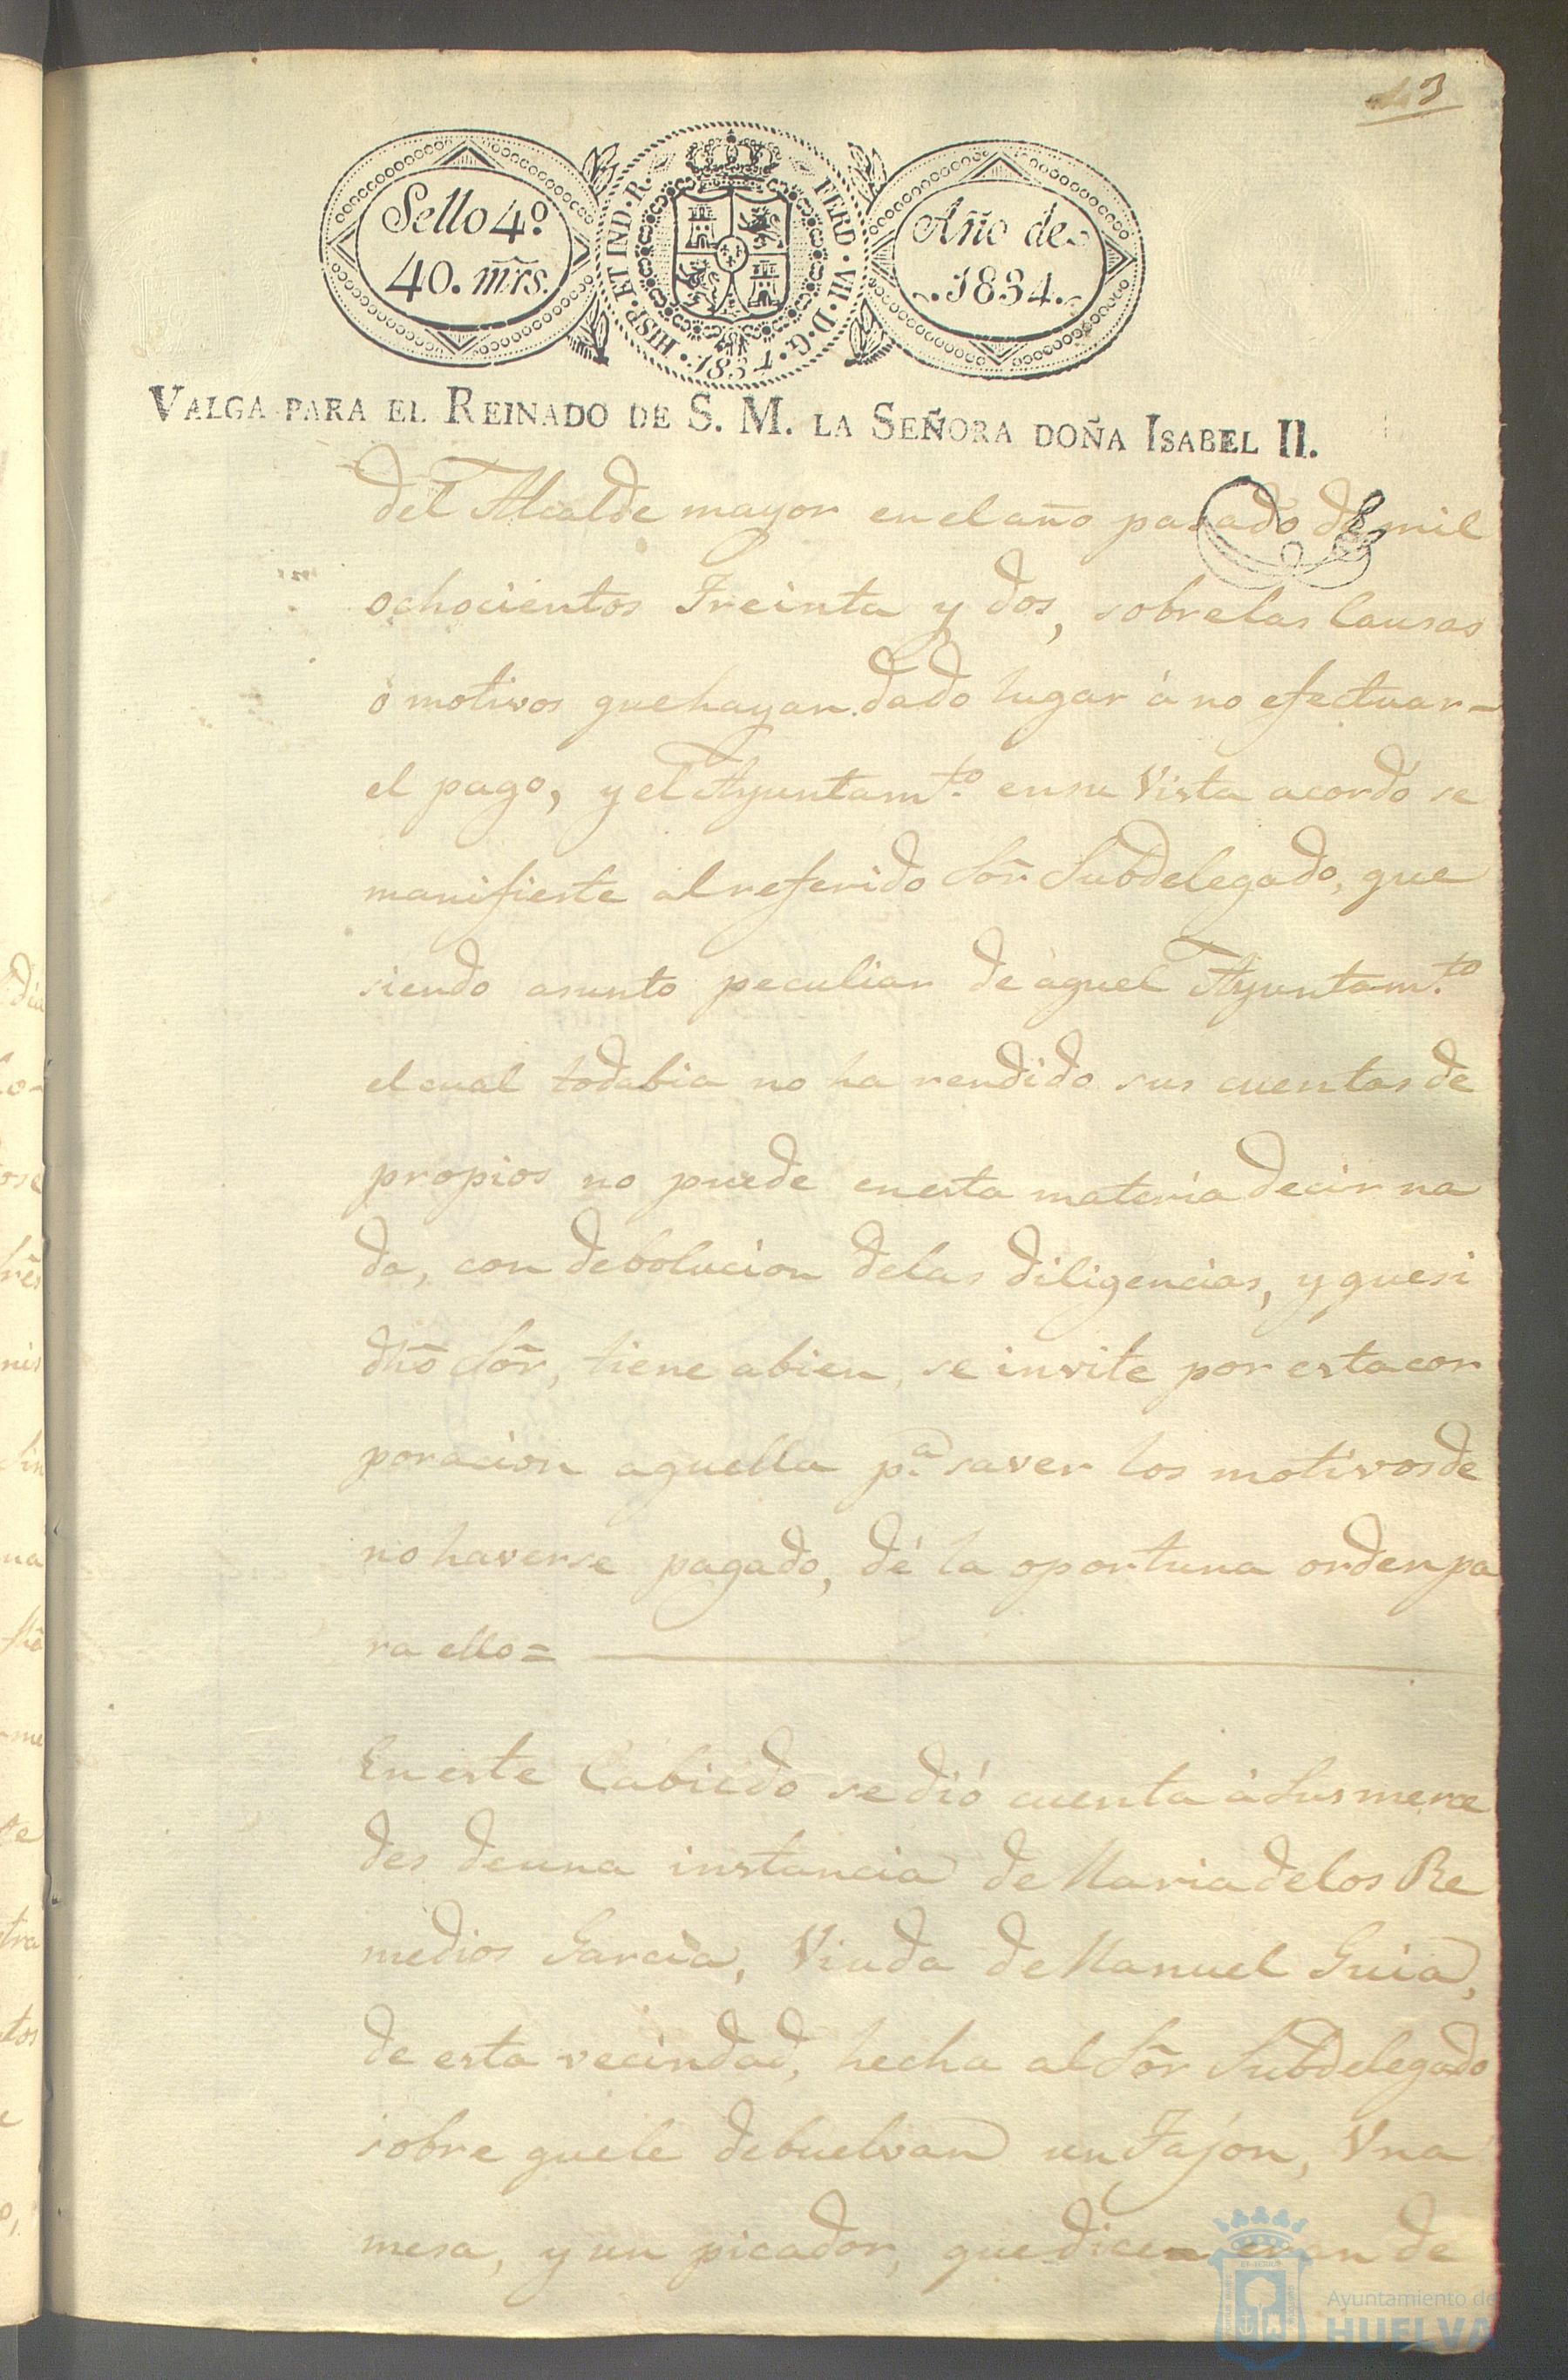 43
Sello 4.º
40. mrs.
HISP. ET IND. R.
FERD. VII. D. G.
1834
Año de
1834.
VALGA PARA EL REINADO DE S. M. LA SEÑORA DOÑA ISABEL II.
del Alcalde mayor en el año pasado de mil
ochocientos Treinta y dos, sobre las Causas
o motivos que hayan dado lugar á no efectuar-
el pago, y el Ayuntam.to en su Vista acordó se
manifieste al referido Sõr Subdelegado, que
siendo asunto peculiar de aquel Ayuntam.to
el cual todabia no ha rendido sus cuentas de
propios no puede en esta materia decir na
da, con debolucion de las diligencias, y que si
dhõ Sõr, tiene abien, se invite por esta cor
poracion aquella p.a saver los motivos de
no haverse pagado, dé la oportuna orden pa
ra ello=
En este Cabildo se dió cuenta á Sus merce
des de una instancia de Maria de los Re
medios Garcia, Viuda de Manuel Guia,
de esta vecindad, hecha al Sõr Subdelegado
sobre que le debuelvan un Tajón, Una
mesa, y un picador, que dicen eran de
Ayuntamiento de
HUELVA